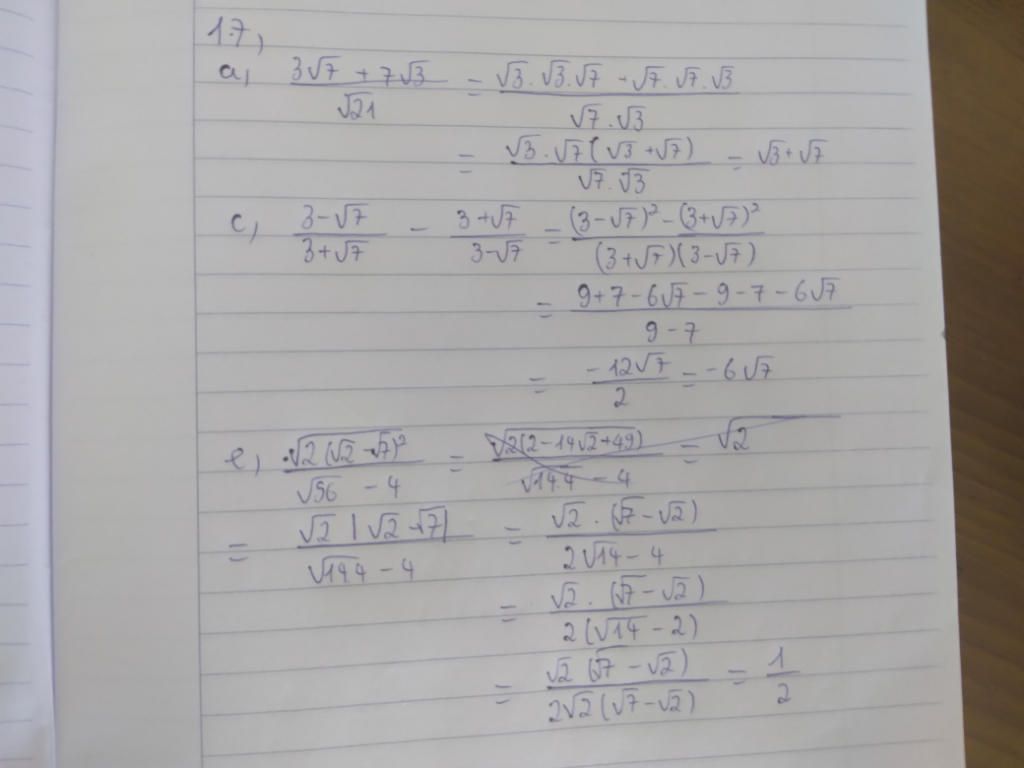 1.7,
a, (3√7 + 7√3)/√21 = (√3.√3.√7 + √7.√7.√3)/(√7.√3)
= (√3.√7(√3+√7))/(√7.√3) = √3+√7
c, (3-√7)/(3+√7) - (3+√7)/(3-√7) = ((3-√7)² - (3+√7)²)/((3+√7)(3-√7))
= (9+7-6√7-9-7-6√7)/(9-7)
= (-12√7)/2 = -6√7
e, √(2(√2-√7)²)/(√56 - 4) = √(2(2-14√2+49))/(√144 - 4) = √2
= (√2 |√2-√7|)/(√144 - 4) = (√2 . (√7-√2))/(2√14 - 4)
= (√2 . (√7-√2))/(2(√14 - 2))
= (√2 (√7-√2))/(2√2(√7-√2)) = 1/2